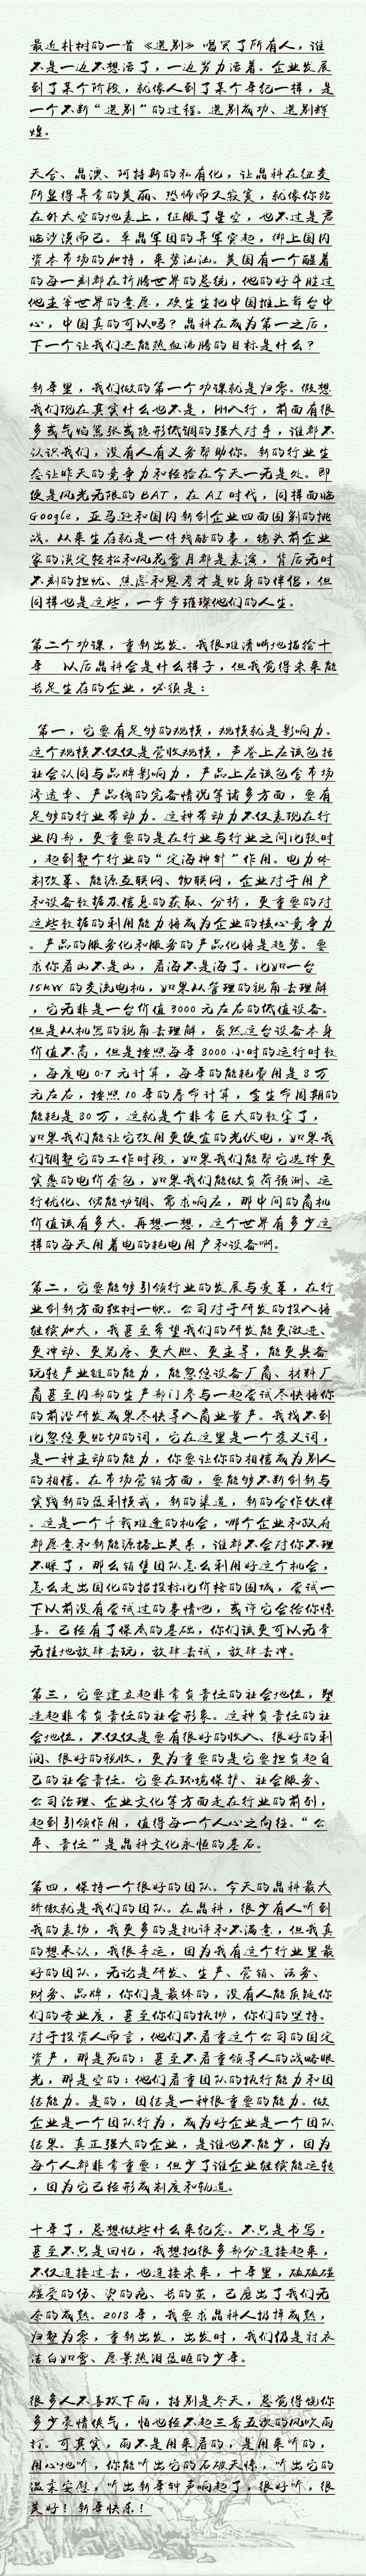 最近朴树的一首《送别》唱哭了所有人，谁
不是一边不想活了，一边努力活着。企业发展
到了某个阶段，就像人到了某个年纪一样，是
一个不断“送别”的过程。送别成功、送别辉
煌。
天合、晶澳、阿特斯的私有化，让晶科在纽交
所显得异常的美丽、恐怖而又寂寞，就像你站
在外太空的地表上，征服了星空，也不过是君
临沙漠而已。单晶军团的异军突起，绑上国内
资本市场的加持，来势汹汹。美国有一个醒着
的每一刻都在折腾世界的总统，他的好斗胜过
他主宰世界的意愿，硬生生把中国推上舞台中
心，中国真的可以吗？晶科在成为第一之后，
下一个让我们还能热血沸腾的目标是什么？
新年里，我们做的第一个功课就是归零。假想
我们现在真实什么也不是，刚入行，前面有很
多或气焰嚣张或隐形低调的强大对手，谁都不
认识我们，没有人有义务帮助你。新的行业生
态让昨天的竞争力和经验在今天一无是处。即
便是风光无限的BAT，在AI时代，同样面临
Google，亚马逊和国内新创企业四面围剿的挑
战。从来生存就是一件残酷的事，镜头前企业
家的淡定轻松和风花雪月都是表演，背后无时
不刻的担忧、焦虑和思考才是贴身的伴侣，但
同样也是这些，一步步璀璨他们的人生。
第二个功课，重新出发。我很难清晰地描绘十
年 以后晶科会是什么样子，但我觉得未来能
长足生存的企业，必须是：
第一，它要有足够的规模，规模就是影响力。
这个规模不仅仅是营收规模，声誉上应该包括
社会认同与品牌影响力，产品上应该包含市场
渗透率、产品线的完备情况等诸多方面，要有
足够的行业带动力。这种带动力不仅表现在行
业内部，更重要的是在行业与行业之间比较时
，起到整个行业的“定海神针”作用。电力体
制改革、能源互联网、物联网，企业对于用户
和设备数据及信息的获取、分析，更重要的对
这些数据的利用能力将成为企业的核心竞争力
。产品的服务化和服务的产品化将是趋势。要
求你看山不是山，看海不是海了。比如一台
15kW 的交流电机，如果从管理的视角去理解
，它无非是一台价值 3000 元左右的低值设备。
但是从机器的视角去理解，虽然这台设备本身
价值不高，但是按照每年 8000 小时的运行时数
，每度电 0.7 元计算，每年的能耗费用是 8 万
元左右，按照 10 年的寿命计算，全生命周期的
能耗是 80 万，这就是个非常巨大的数字了，
如果我们能让它改用更便宜的光伏电，如果我
们调整它的工作时段，如果我们能帮它选择更
实惠的电价套包，如果我们能做负荷预测、运
行优化、储能协调、需求响应，那中间的商机
价值该有多大。再想一想，这个世界有多少这
样的每天用着电的耗电用户和设备啊。
第二，它要能够引领行业的发展与变革，在行
业创新方面独树一帜。公司对于研发的投入将
继续加大，我甚至希望我们的研发能更激进、
更冲动、更荒唐、更大胆、更主导，能更具备
玩转产业链的能力，能忽悠设备厂商、材料厂
商甚至内部的生产部门参与一起尝试尽快将你
的前沿研发成果尽快导入商业量产。我找不到
比忽悠更贴切的词，它在这里是一个褒义词，
是一种主动的能力，你要让你的相信成为别人
的相信。在市场营销方面，要能够不断创新与
实践新的盈利模式，新的渠道，新的合作伙伴
。这是一个千载难逢的机会，哪个企业和政府
都愿意和新能源搭上关系，谁都不会对你不理
不睬了，那么销售团队怎么利用好这个机会，
怎么走出固化的招投标比价格的围城，尝试一
下以前没有尝试过的事情吧，或许它会给你惊
喜。已经有了保底的基础，你们该更可以无牵
无挂地放肆去玩，放肆去试，放肆去冲。
第三，它要建立起非常负责任的社会地位，塑
造起非常负责任的社会形象。这种负责任的社
会地位，不仅仅是要有很好的收入、很好的利
润、很好的税收，更为重要的是它要担负起自
己的社会责任。它要在环境保护、社会服务、
公司治理、企业文化等方面走在行业的前列，
起到引领作用，值得每一个人心之向往。“公
平、责任”是晶科文化永恒的基石。
第四，保持一个很好的团队。今天的晶科最大
骄傲就是我们的团队。在晶科，很少有人听到
我的表扬，我更多的是批评和不满意，但我真
的想承认，我很幸运，因为我有这个行业里最
好的团队，无论是研发、生产、营销、法务、
财务、品牌，你们是最棒的，没有人能质疑你
们的专业度，甚至你们的执拗，你们的坚持。
对于投资人而言，他们不看重这个公司的固定
资产，那是死的；甚至不看重领导人的战略眼
光，那是空的；他们看重团队的执行能力和团
结能力。是的，团结是一种很重要的能力。做
企业是一个团队行为，成为好企业是一个团队
结果。真正强大的企业，是谁也不能少，因为
每个人都非常重要；但少了谁企业继续能运转
，因为它已经形成制度和轨道。
十年了，总想做些什么来纪念。不只是书写，
甚至不只是回忆，我想把很多部分连接起来，
不仅连接过去，也连接未来，十年里，磕磕碰
碰受的伤、烫的疤、长的茧，已磨出了我们无
奈的成熟。2018 年，我要求晶科人扔掉成熟，
归整为零，重新出发，出发时，我们仍是衬衣
洁白如雪、愿景热泪盈眶的少年。
很多人不喜欢下雨，特别是冬天，总觉得饶你
多少豪情侠气，怕也经不起三番五次的风吹雨
打。可其实，雨是不用来看的，是用来听的，
用心地听，你能听出它的石破天惊，听出它的
温柔安慰，听出新年钟声响起了，很好听，很
美好！新年快乐！